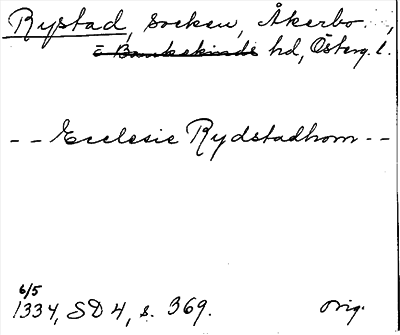 Rystad, socken, Åkerbo,
Bankekinds hd, Österg. l.
- - Ecclesie Rydstadhom - -
6/5
1334, SD 4, s. 369. Orig.